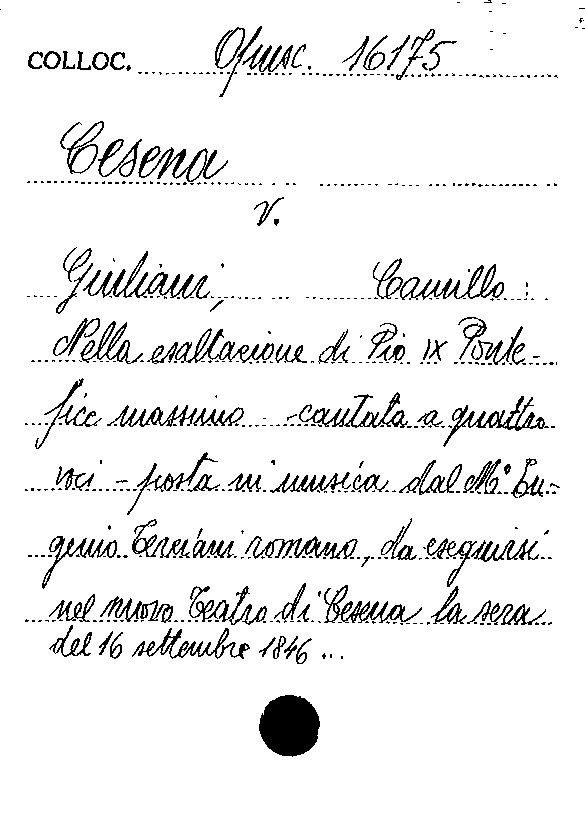 COLLOC. Opusc. 16175
Cesena
v.
Giuliani, Camillo :
Nella esaltazione di Pio IX Ponte-
fice massimo - cantata a quattro
voci - posta in musica dal M° Eu-
genio Terziani romano, da eseguirsi
nel nuovo Teatro di Cesena la sera
del 16 settembre 1846 ...